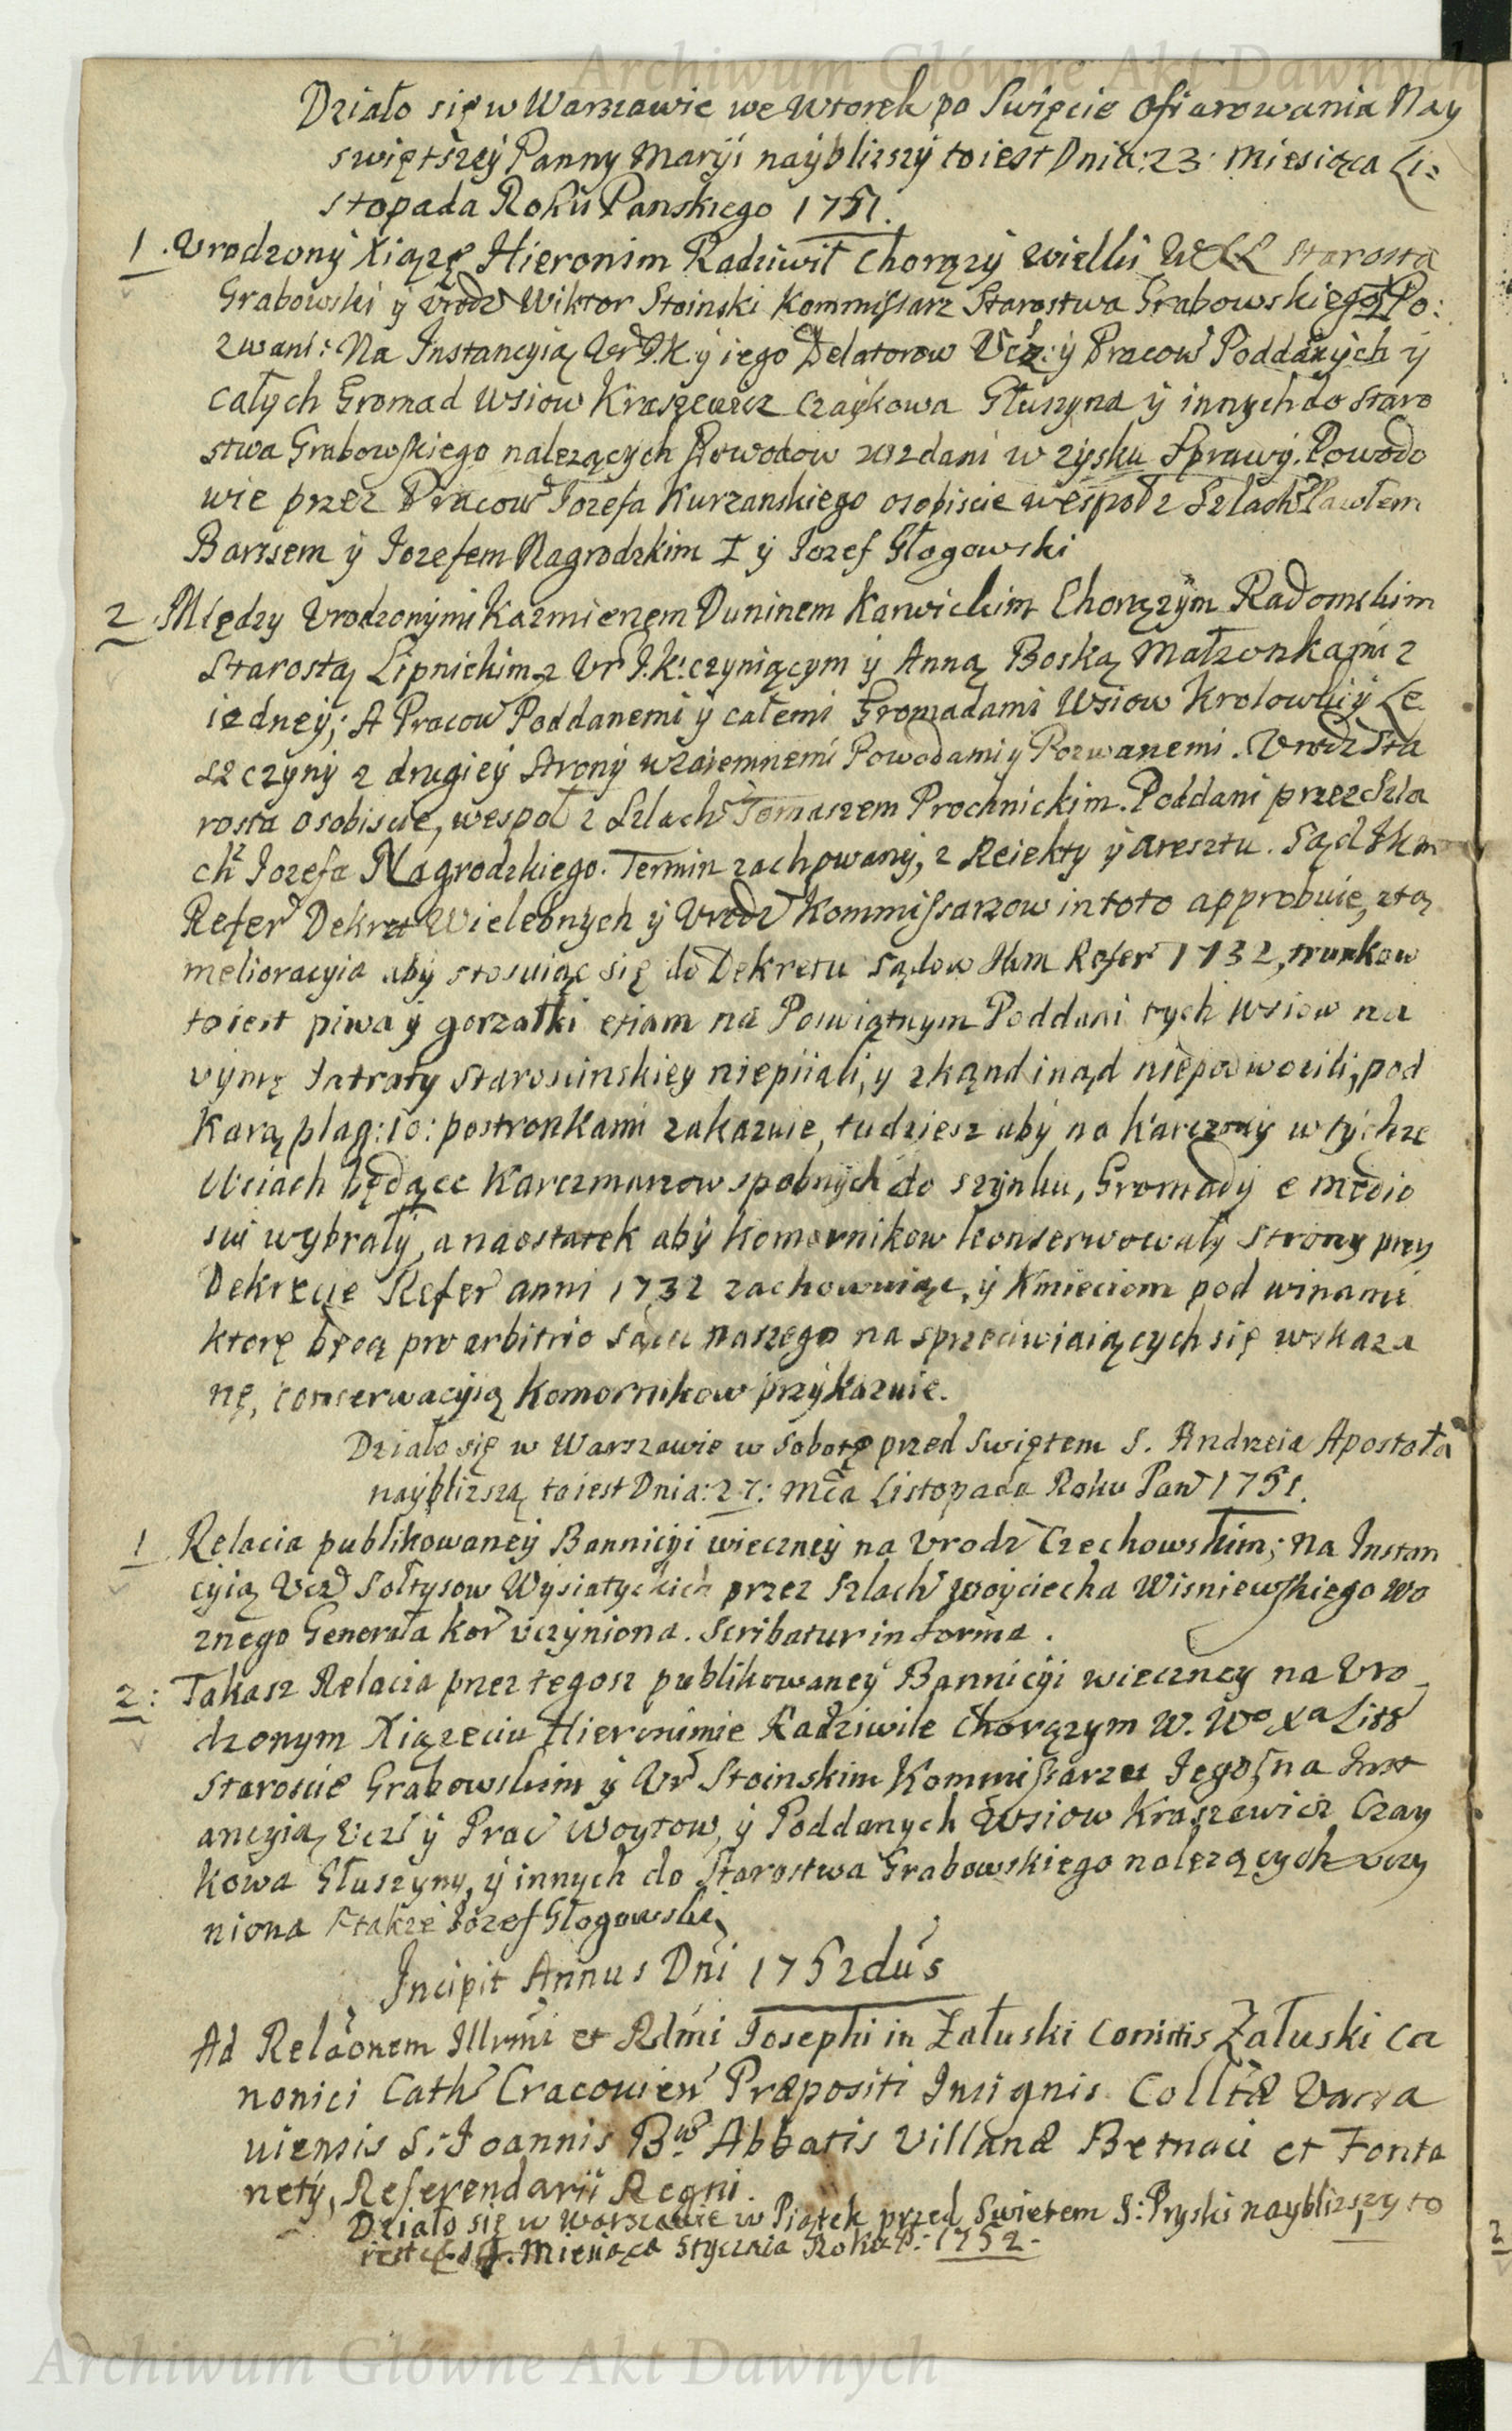 Archiwum Główne Akt Dawnych
Działo się w Warszawie we Wtorek po Swięcie Ofiarowania Nay
swiętszey Panny Maryi naybliszy to iest Dnia: 23. Miesiąca Li=
stopada Roku Panskiego 1751.
1. Vrodzony Xiążę Hieronim Radziwił Chorąży Wielki WXL Starosta
Grabowski y Vrodz Wiktor Stoinski Kommissarz Starostwa Grabowskiego Po:
zwani: Na Instancyią Vr I.K. y iego Delatorow Vcz: y Pracow Poddanych y
całych Gromad Wsiow Kraszewicz Czaykowa Głuszyna y innych do Staro
stwa Grabowskiego należących Powodow wzdani w zysku Sprawy. Powodo
wie przez Pracow Iozefa Kurzanskiego osobiscie wespoł z Szlach Pawłem
Barssem y Iozefem Nagrodzkim I y Iozef Głogowski
2. Między Vrodzonymi Kazmierzem Duninem Karwickim Chorążym Radomskim
Starostą Lipnickim z Vr I.K: czyniącym y Anną Boską Małżonkami z
iedney; A Pracow Poddanemi y całemi Gromadami Wsiow Krolowki y Le
szczyny z drugiey Strony wzaiemnemi Powodami y Pozwanemi. Vrodz Sta
rosta osobiscie, wespoł z Szlach Tomaszem Prochnickim. Poddani przez Szla
ch Iozefa Nagrodzkiego. Termin zachowany, z Reiekty y Aresztu. Sąd Ikm
Refer Dekret Wielebnych y Vrodz Kommissarzow in toto approbuie, z tą
melioracyia aby stosuiąc się do Dekretu Sądow Ikm Refer 1732, trunkow
to iest piwa y gorzałki etiam na Powiątnym Poddani tych Wsiow na
vymę Intraty Staroscinskiey niepiiali, y zkąndinąd niepozwozili, pod
Karą plag: 10: postronkami zakazuie, tudziesz aby na Karczmy w tychże
Wsiach będące Karczmarzow sposobnych do szynku, Gromady e medio
sui wybrały, a naostatek aby Komornikow konserwowały Strony przy
Dekrecie Refer anni 1732 zachowuiąc, y Kmieciom pod winami
ktore będą pro arbitrio Sądu naszego na sprzeciwiaiących się wskaza
ne, conserwacyią Komornikow przykazuie.
Działo się w Warszawie w Sobotę przed Swiętem S. Andrzeia Apostoła
naybliszszą to iest Dnia: 27: Mca Listopada Roku Pań 1751.
1 Relacia publikowaney Bannicyi wieczney na Vrodz Czechowskim; Na Instan
cyią Vcz Sołtysow Wysiatyckich przez Szlach Woyciecha Wisniewskiego Wo
znego Generała Kor vczyniona. Scribatur in forma.
2: Takasz Relacia przez tegosz publikowaney Bannicyi wieczney na Vro
dzonym Xiążeciu Hieronimie Radziwile Chorążym W. Wo Xa Litt
Staroscie Grabowskim y Vr Stoinskim Kommissarzu Iego, na Inst
ancyią Vcz y Prac Woytow, y Poddanych Wsiow Kraszewicz Czay
kowa Głuszyny, y innych do Starostwa Grabowskiego należących vczy
niona Itakże Iozef Głogowski
Incipit Annus Dni 1752dus
Ad Relaonem Illrmi et Rdmi Iosephi in Załuski Comitis Załuski Ca
nonici Cath Cracovien Præpositi Insignis Colltæ Varsa
viensis S. Ioannis Bttæ Abbatis Villanæ Betnaci et Fonta
nety, Referendarii Regni.
Działo się w Warszawie w Piątek przed Swietem S: Pryski naybliszszy to
iest Miesiąca Stycznia Roku P. 1752.
2
Archiwum Główne Akt Dawnych